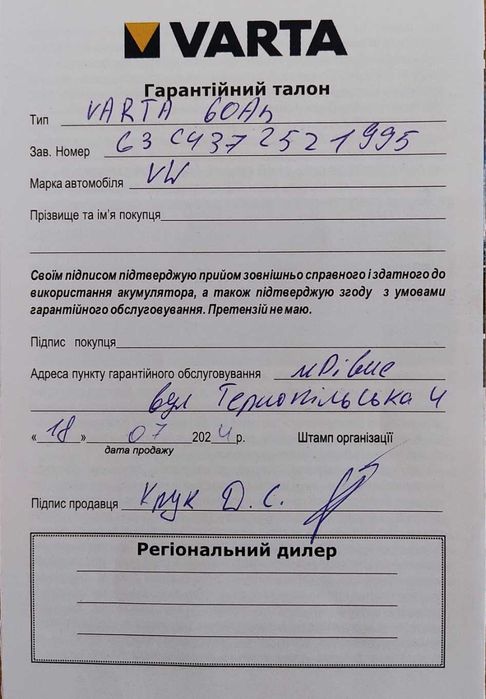 VARTA
Гарантійний талон
Тип VARTA 60Ah
Зав. Номер G3C4372521995
Марка автомобіля VW
Прізвище та ім'я покупця
Своїм підписом підтверджую прийом зовнішньо справного і здатного до
використання акумулятора, а також підтверджую згоду з умовами
гарантійного обслуговування. Претензій не маю.
Підпис покупця
Адреса пункту гарантійного обслуговування м Рівне
вул Тернопільська 4
« 18 » 07 2024 р. Штамп організації
дата продажу
Підпис продавця Крук Д. С.
Регіональний дилер